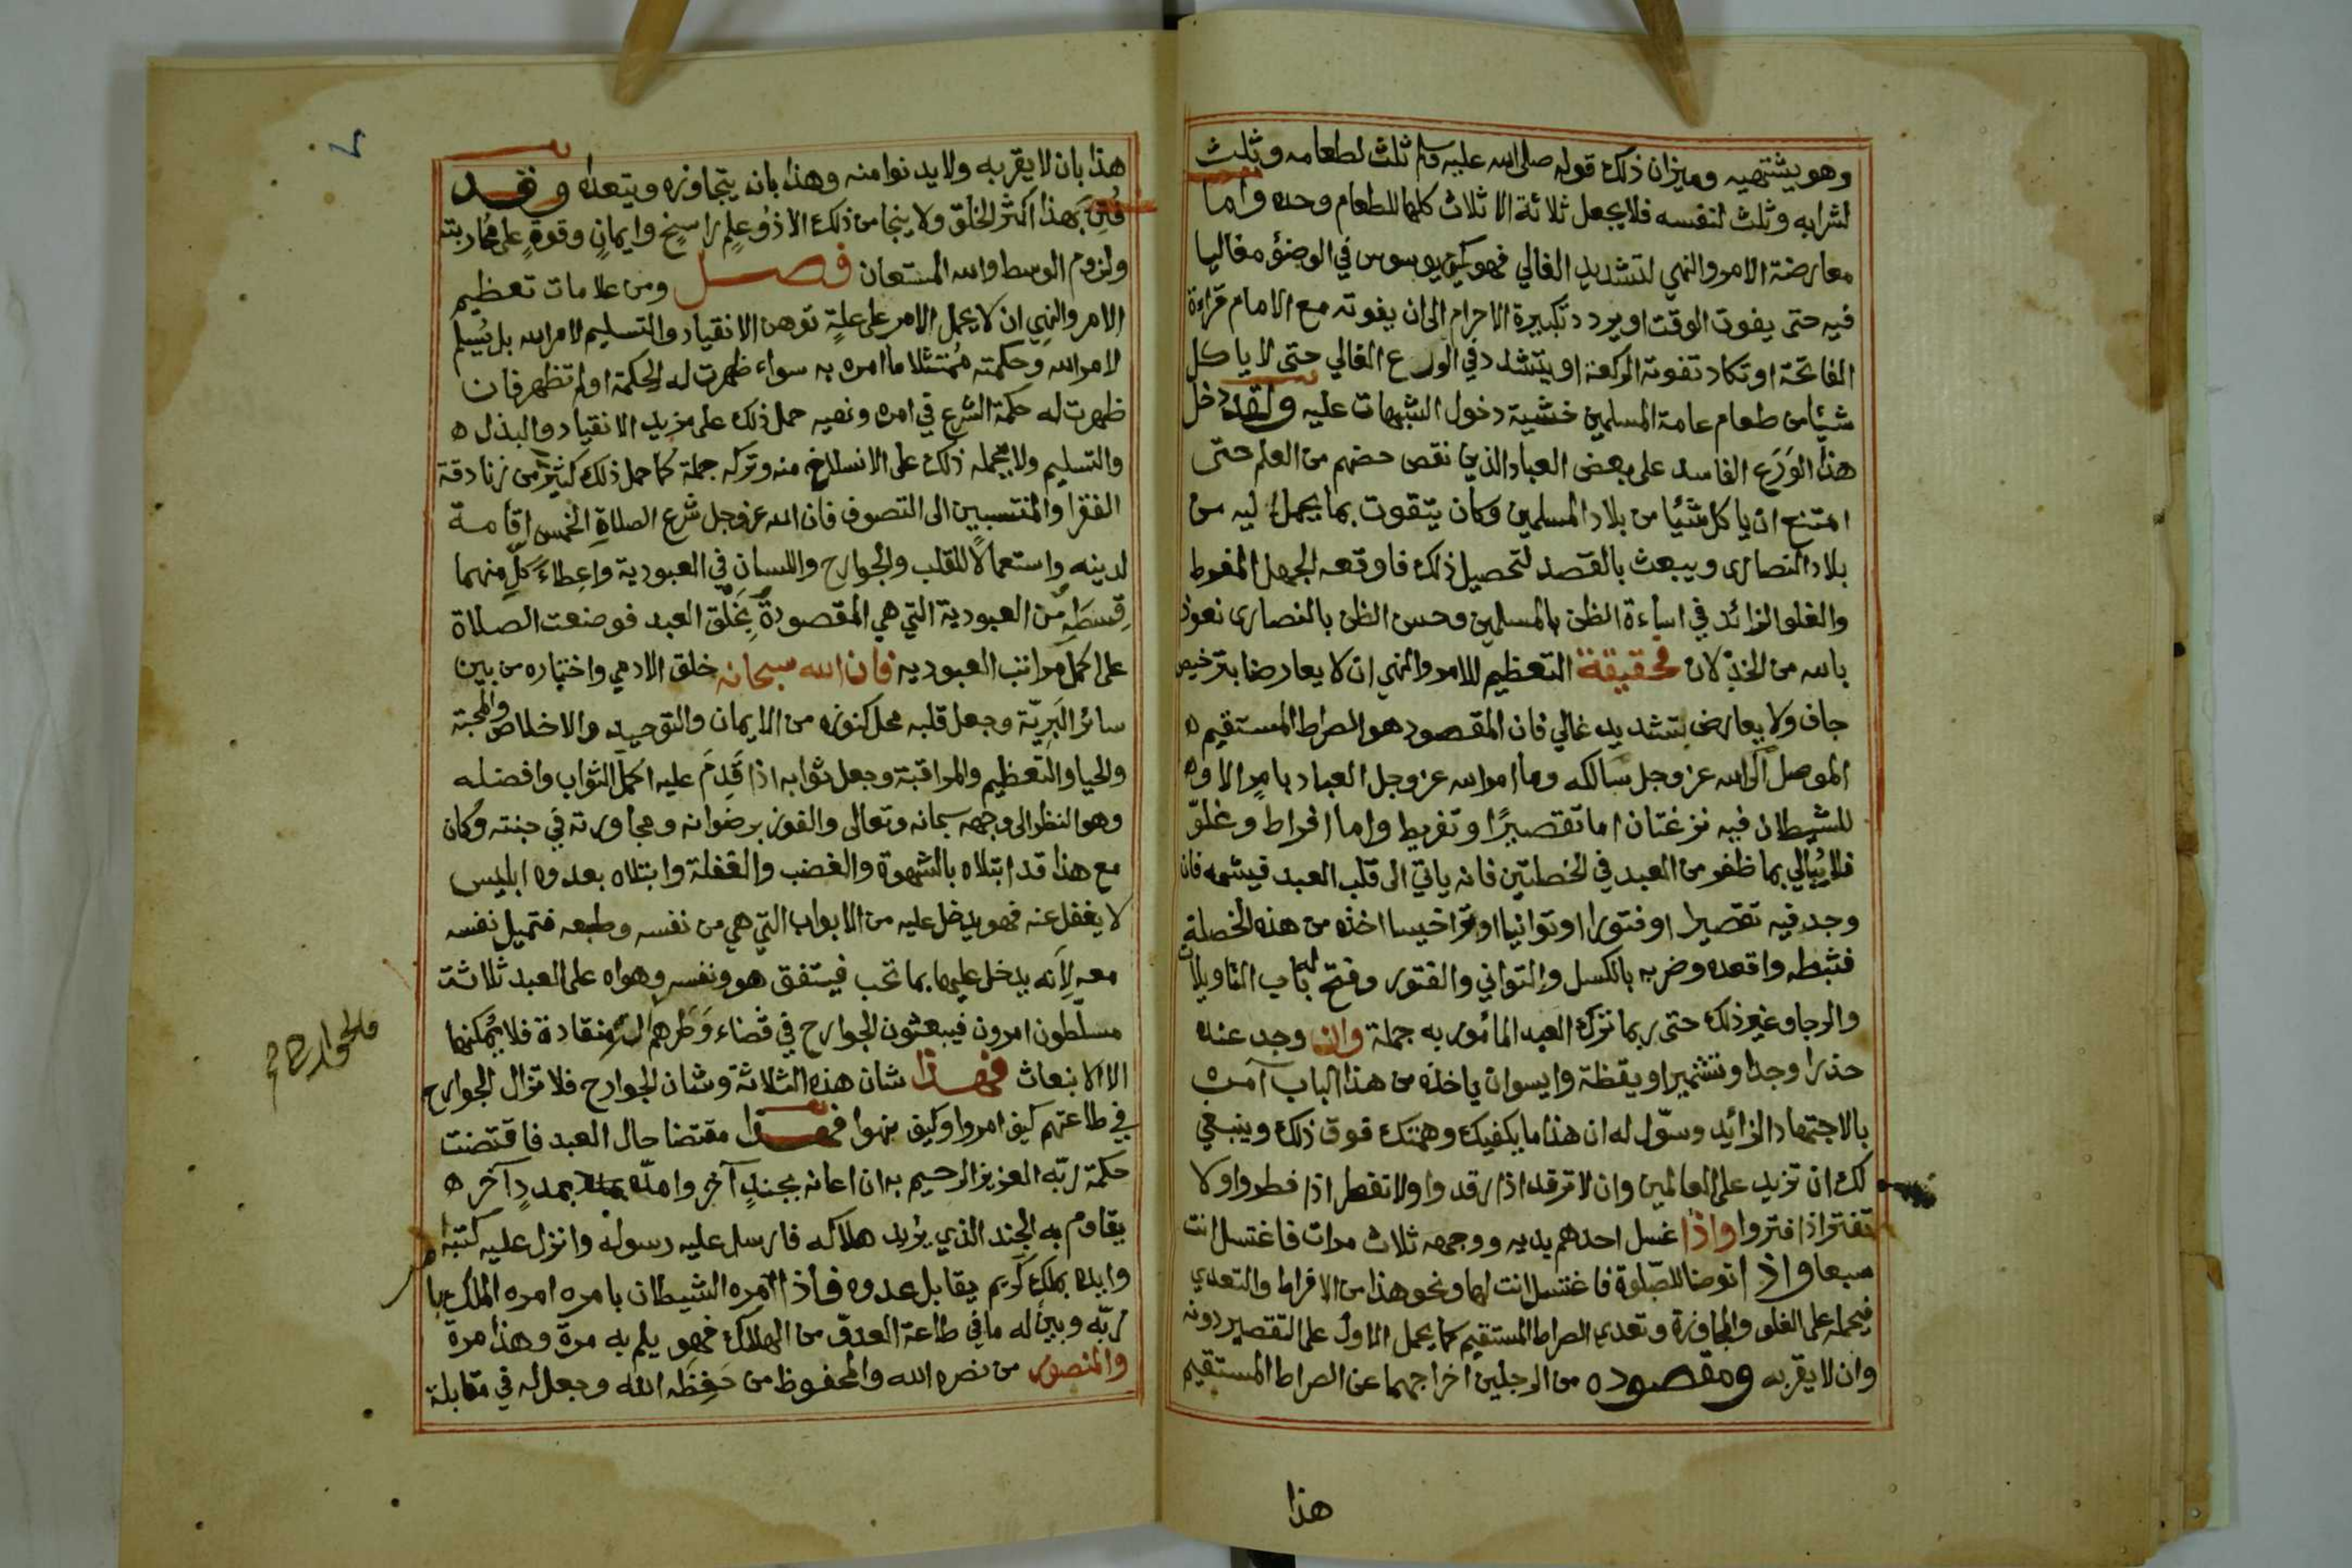 وهو يشتهيه وميزان ذلك قوله صلى الله عليه وسلم ثلث لطعامه وثلث
لشرابه وثلث لنفسه فلا يجعل ثلاثة الاثلاث كلها للطعام وحده واما
معارضة الامر والنهي لتشديد الغالي فهو كمن يوسوس في الوضؤ مغاليا
فيه حتى يفوت الوقت او يردد تكبيرة الاحرام الى ان يفوته مع الامام قراءة
الفاتحة او تكاد تفوته الركعة او يتشدد في الورع الغالي حتى لا ياكل
شيئا من طعام عامة المسلمين خشية دخول الشبهات عليه ولقد دخل
هذا الوَرَع الفاسد على بعض العباد الذين نقص حضهم من العلم حتى
امتنع ان ياكل شيئا من بلاد المسلمين وكان يتقوت بما يحمل اليه من
بلاد النصارى ويبعث بالقصد لتحصيل ذلك فاوقعه الجهل المفرط
والغلو الزائد في اساءة الظن بالمسلمين وحسن الظن بالنصارى نعوذ
بالله من الخذلان فحقيقة التعظيم للامر والنهي ان لا يعارضا بترخيص
جاف ولا يعارض بتشديد غالي فان المقصود هو الصراط المستقيم
الموصل الى الله عز وجل سالكه وما امر الله عز وجل العباد بامرٍ الا و
للشيطان فيه نزغتان اما تقصيرًا وتفريط واما افراط وغلوّ
فلا يُبالي بما ظفر من العبد في الخطتين فانه ياتي الى قلب العبد فيشمه فان
وجد فيه تقصيرا او فتورا او توانيا او تراخيسا اخذه من هذه الخصلة
فثبطه واقعده وضربه بالكسل والتواني والفتور وفتح له باب التاويلات
والرجا وغير ذلك حتى ربما ترك العبد المأمور به جملة وان وجد عنده
حذرا وجدا وتشميرا ويقظة وايس ان ياخذه من هذا الباب آمره
بالاجتهاد الزائد وسوّل له ان هذا ما يكفيك وهمتك فوق ذلك وينبغي
لك ان تزيد على العالمين وان لا ترقد اذا رقدوا ولا تفطر اذا فطروا ولا
تفتر اذا فتروا واذا غسل احدهم يديه ووجهه ثلاث مرات فاغتسل انت
سبعا واذ اتوضا للصّلوة فاغتسل انت لها ونحو هذا من الافراط والتعدي
فيحمله على الغلو والمجاوزة وتعدي الصراط المستقيم كما يحمل الاول على التقصير دونه
وان لا يقربه ومقصوده من الرجلين اخراجهما عن الصراط المستقيم
هذا
هذا بان لا يقربه ولا يدنوا منه وهذا بان يتجاوزه ويتعداه وقد
فُتِن بهذا اكثر الخلق ولا ينجا من ذلك الا ذُو عِلمٍ راسخٍ وايمانٍ وقوةٍ على محاربته
ولزوم الوسط والله المستعان فصل ومن علامات تعظيم
الامر والنهي ان لا يحمل الامر على علةٍ توهن الانقياد والتسليم لامر الله بل يُسلم
لامر الله وحكمته مُمتثلا ما امره به سواء ظهرت له الحكمة او لم تظهر فان
ظهرت له حكمة الشرع في امره ونهيه حمل ذلك على مزيد الانقياد والبذل
والتسليم ولا يحمله ذلك على الانسلاخ منه وتركه جملة كما حمل ذلك كثير من زنادقة
الفقرا والمنتسبين الى التصوف فان الله عز وجل شرع الصلاة الخمس اقامة
لدينه واستعمالًا للقلب والجوارح واللسان في العبودية واعطاءَ كلٍّ منهما
قِسطَهِ من العبودية التي هي المقصودةُ بخَلْق العبد فوضعت الصلاة
على اكمل مراتب العبودية فان الله سبحانه خلق الادمي واختاره من بين
سائر البَرِيّة وجعل قلبه محل كنوزه من الايمان والتوحيد والاخلاص والمحبة
والحيا والتعظيم والمراقبة وجعل ثوابه اذا قَدِمَ عليه اكمل الثواب وافضله
وهو النظر الى وجهه سبحانه وتعالى والفوز برضوانه ومجاورته في جنته وكان
مع هذا قد ابتلاه بالشهوة والغضب والغفلة وابتلاه بعدوه ابليس
لا يغفل عنه فهو يدخل عليه من الابواب التي هي من نفسه وطبعه فتميل نفسه
معه لِاَنه يدخل عليها بما تحب فيتفق هو ونفسه وهواه على العبد ثلاثة
مسلّطون امرون فيبعثون الجوارح في قضاء وَطَرهم منقادة فلا يُمكنها
الا الانبعاث فهذا شان هذه الثلاثة وشان الجوارح فلا تزال الجوارح
في طاعتهم كيف امروا وكيف يهوا فهذا مقتضا حال العبد فاقتضت
حكمة ربّه العزيز الرحيم به ان اعانه بجندٍ آخر وامدّه بمددٍ آخر
يقاوم به الجند الذي يريد هلاكه فارسل عليه رسوله وانزل عليه كتبه
وايده بملك كريم يقابل عدوه فاذا امره الشيطان بامره امره الملك با
ربّه وبين له ما في طاعة العدوّ من الهلاك فهو يلم به مرة وهذا مرة
والمنصور من نصره الله والمحفوظ من حَفِظَه الله وجعل له في مقابلة